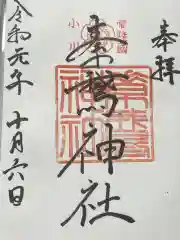 奉拝
常陸國
素鵞神社
小川
令和元年十月六日